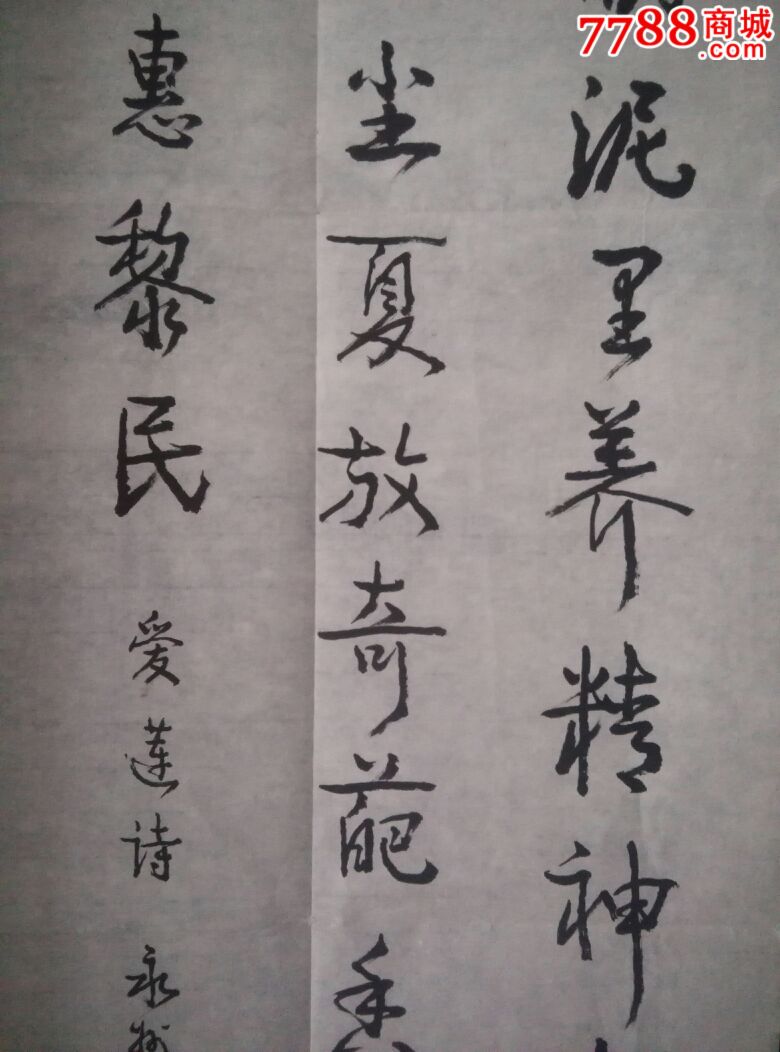 7788商城
.com
泥里养精神
尘夏放奇葩
惠黎民
爱莲诗 永州